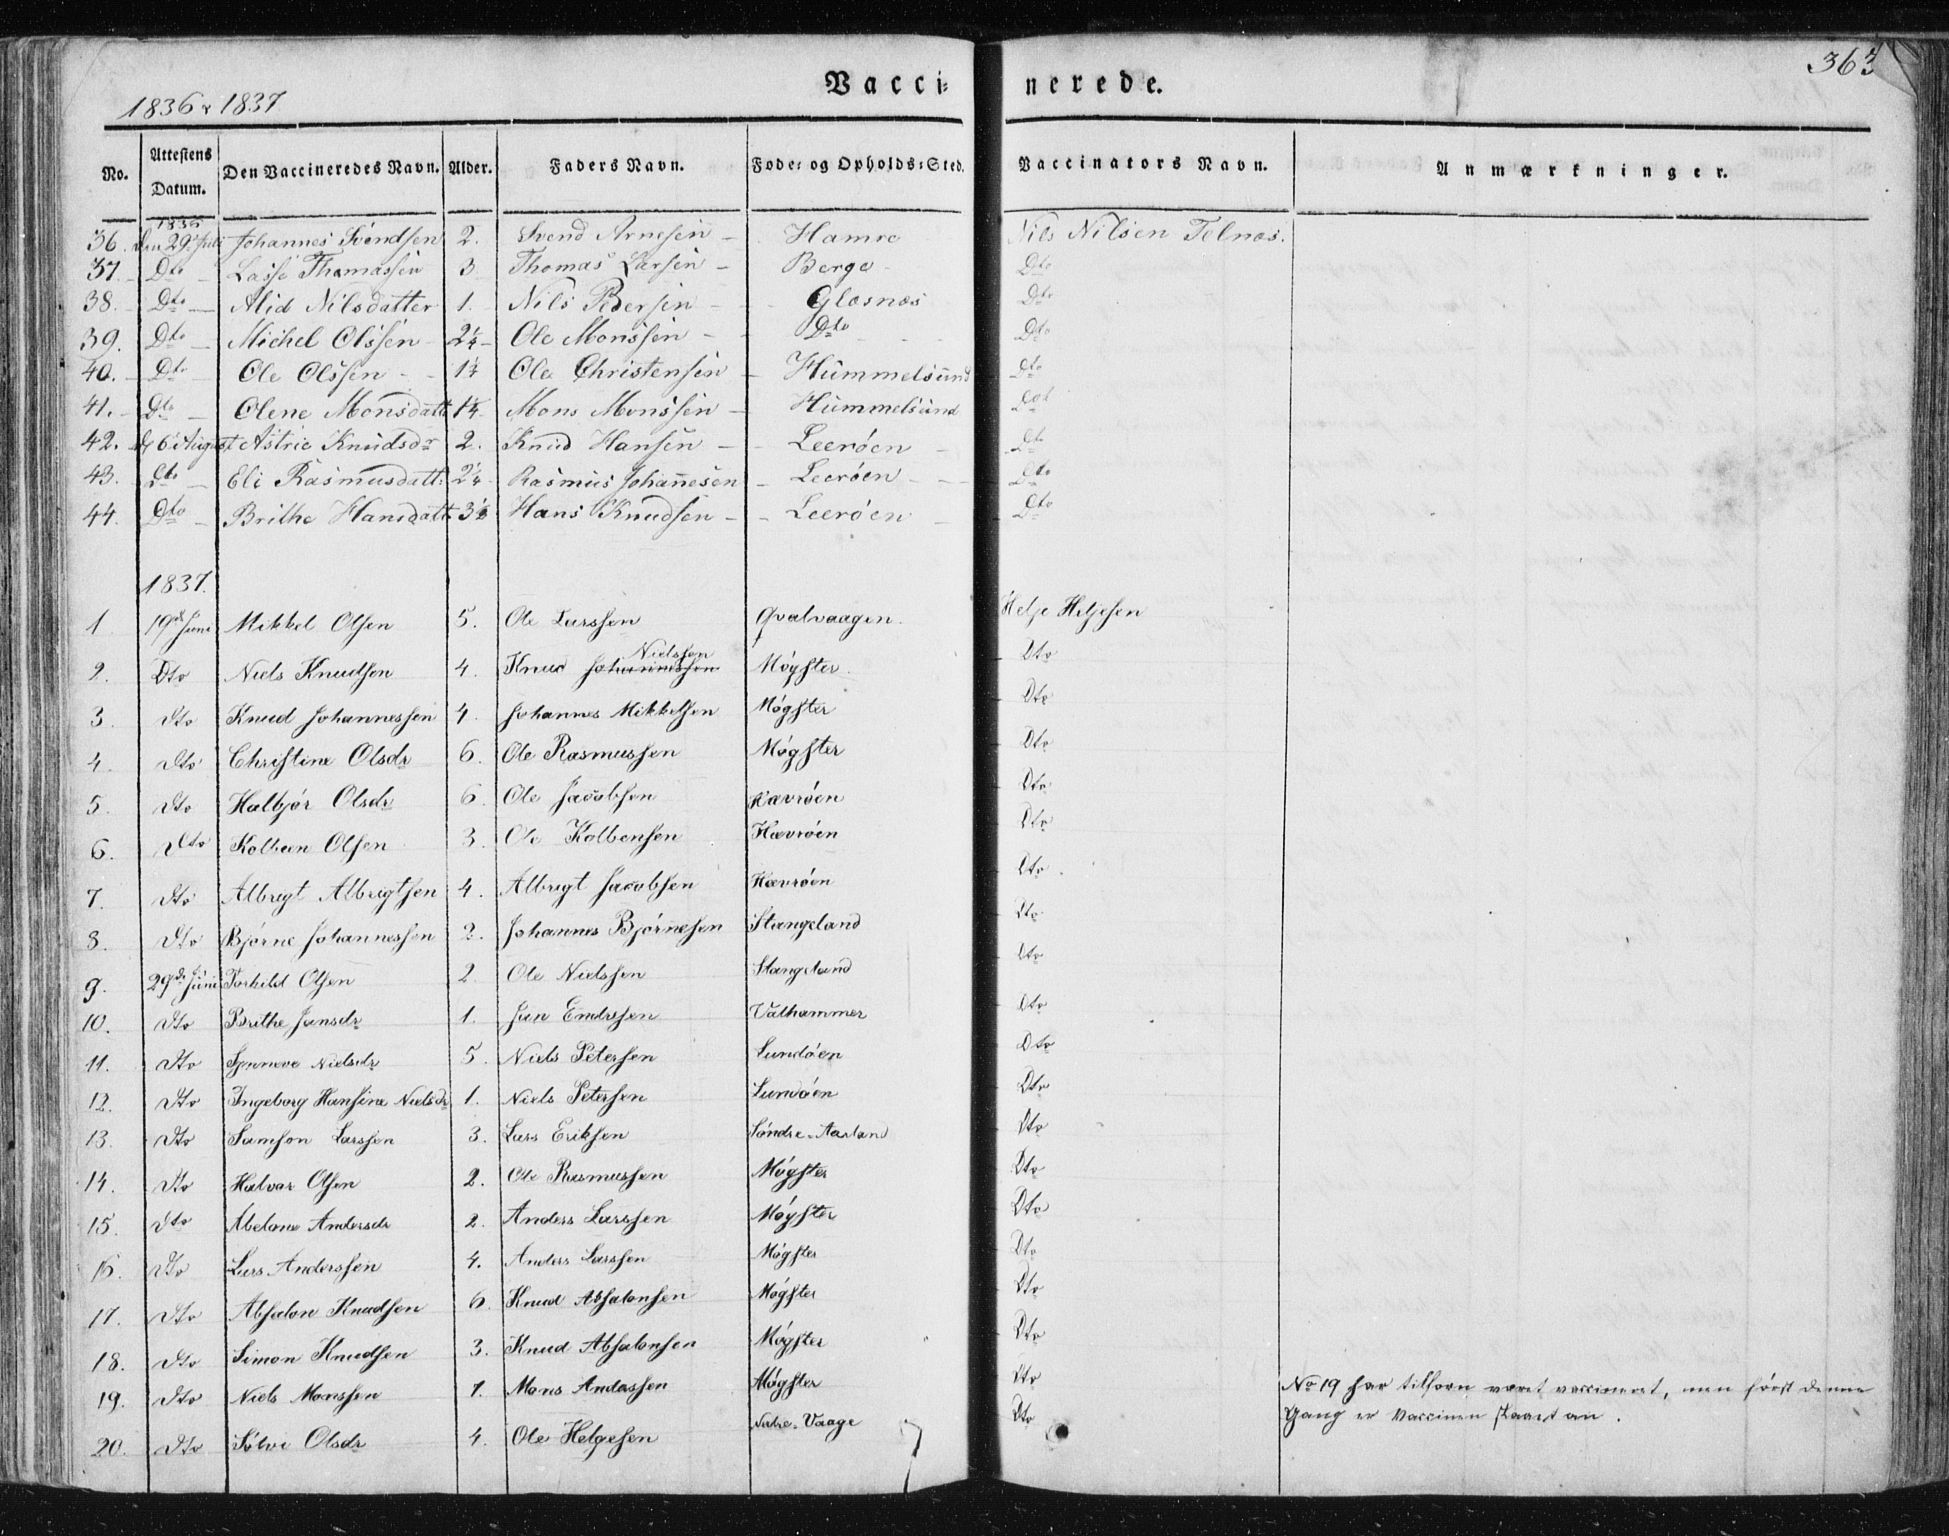 363
Vaccinerede.
1836 & 1837
No. Attestens Datum. Den Vaccineredes Navn. Alder. Faders Navn. Føde- og Opholds-Sted. Vaccinators Navn. Anmærkninger.
1836
36. den 29de Juli Johannes Svendsen 2. Svend Arnesen Hamre Nils Nilsen Telnæs.
37. Dto Lasse Thomassen 3 Thomas Larsen Berge Dto
38. Dto Alid Nilsdatter 1. Nils Pedersen Glæsnæs Dto
39. Dto Michel Olssen 2¼ Ole Monssen Dto Dto
40. Dto Ole Olssen 1½ Ole Christensen Hummelsund Dto
41. Dto Olene Monsdatt 1¼ Mons Monssen Hummelsund Dot
42. d. 6 August Astrie Knudsdr 2. Knud Hansen Leerøen Dto
43. Dto Eli Rasmusdatt: 2¼ Rasmus Johannesen Leerøen Dto
44. Dto Brithe Hansdatt 3½ Hans Knudsen Leerøen Dto
1837.
1 19de Juni Mikkel Olsen 5. Ole Larssen Qvalvaagen. Helje Heljesen
2. Dto Niels Knudsen 4. Knud Johannessen Nielssen Møgster. Dto
3. Dto Knud Johannessen 4. Johannes Mikkelsen Møgster Dto
4. Dto Christine Olsdr 6. Ole Rasmussen Møgster Dto
5. Dto Halbjør Olsdr 6. Ole Jacobsen Hævrøen Dto
6. Dto Kolben Olsen 3. Ole Kolbensen Hævrøen Dto
7. Dto Albregt Albregtsen 4. Albregt Jacobsen Hævrøen Dto
8. Dto Bjørne Johannessen 2. Johannes Bjørnesen Stangeland Dto
9. 29de Juni Torkild Olsen 2 Ole Nielssen Stangeland Dto
10. Dto Brithe Jansdr 1. Jan Endresen Valhammer Dto
11. Dto Synneve Nielsdr 5. Niels Petersen Lundøen Dto
12. Dto Ingeborg Hansine Nielsdr 1. Niels Petersen Lundøen Dto
13. Dto Samson Larssen 3. Lars Eriksen Søndre-Aarland Dto
14. Dto Halvar Olsen 2. Ole Rasmussen Møgster Dto
15. Dto Abelone Andersdr 2. Anders Larssen Møgster Dto
16. Dto Lars Anderssen 4. Anders Larssen Møgster Dto
17. Dto Absalon Knudsen 6. Knud Absalonsen Møgster Dto
18. Dto Simon Knudsen 3. Knud Absalonsen Møgster Dto
19. Dto Niels Monssen 1. Mons Anderssen Møgster Dto No 19 har tilforn været vaccineret, men først denne
20. Dto Sølvi Olsdr 4. Ole Helgesen Nedre-Vaage Dto Gang er Vaccinen slaaet an.